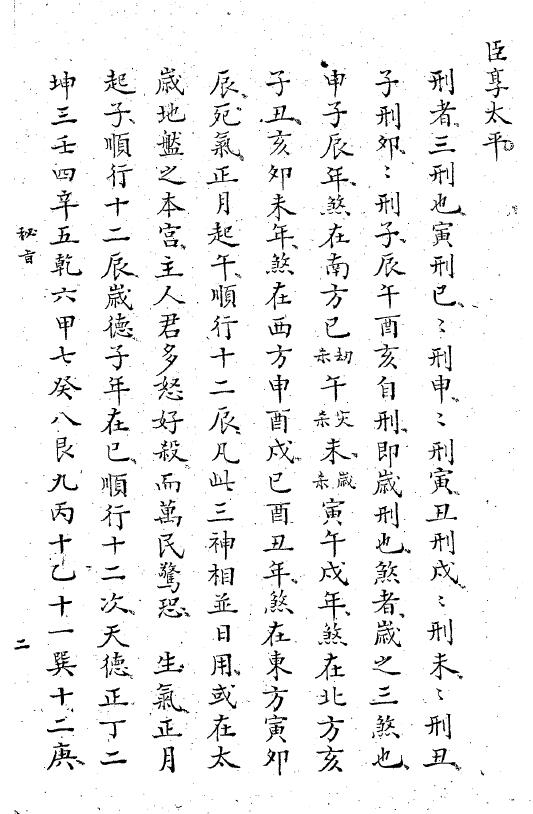 臣享太平。
刑者、三刑也、寅刑巳、〻刑申、〻刑寅、丑刑戌、〻刑未、〻刑丑、
子刑卯、〻刑子、辰午酉亥自刑、即歲刑也、煞者、歲之三煞也、
申子辰年、煞在南方巳劫杀午灾杀未歲杀、寅午戌年、煞在北方亥
子丑、亥卯未年、煞在西方申酉戌、巳酉丑年、煞在東方寅卯
辰、死氣、正月起午、順行十二辰、凡此三神相並日用、或在太
歲地盤之本宮、主人君多怒好殺而萬民驚恐、 生氣、正月
起子、順行十二辰、歲德、子年在巳、順行十二次、天德、正丁二
坤三壬四辛五乾六甲七癸八艮九丙十乙十一巽十二庚、
秘旨
二